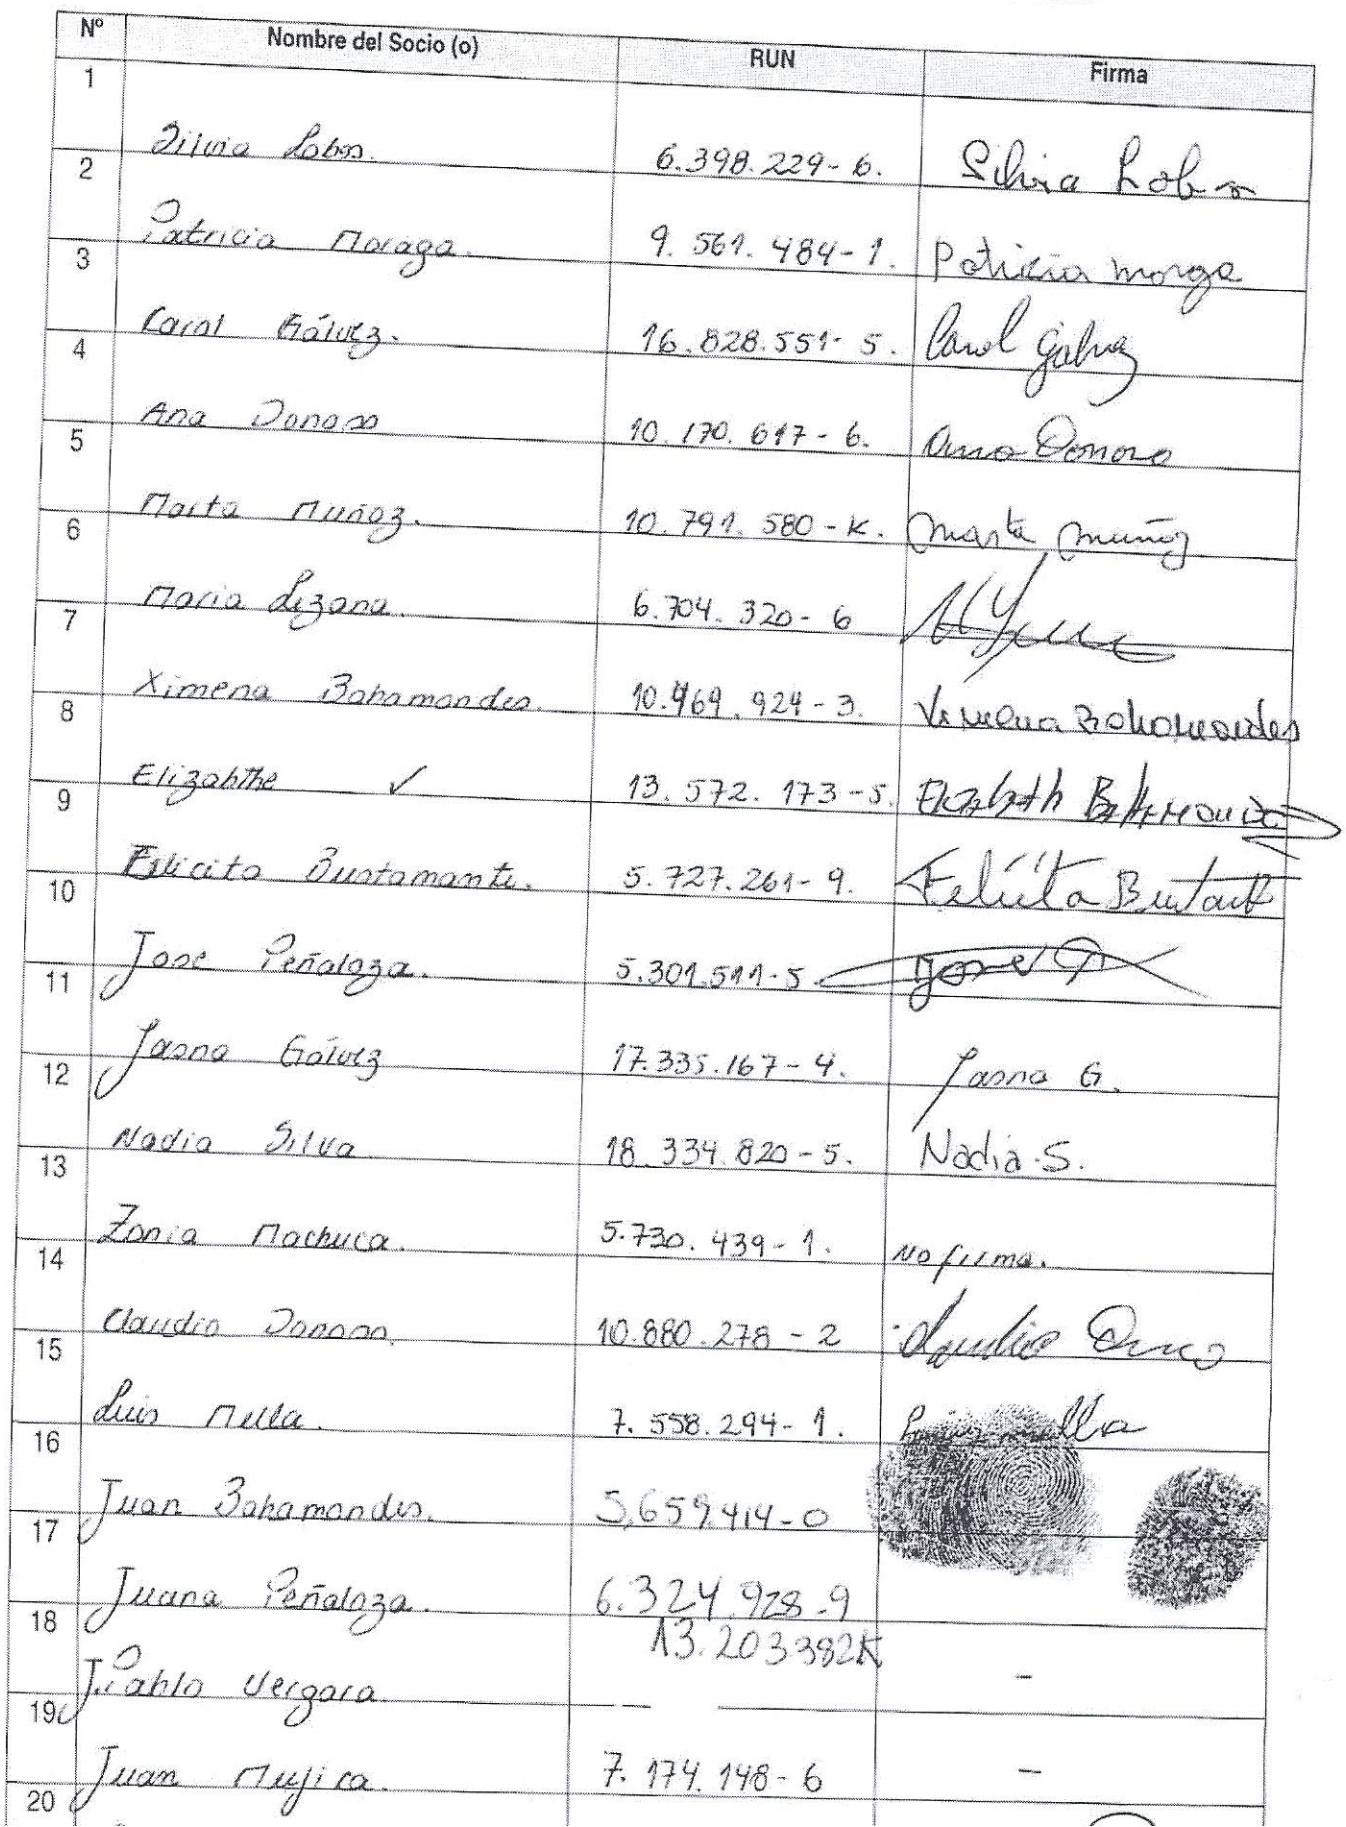 Nº Nombre del Socio (o) RUN Firma
1 Silvia Lobos. 6.398.229-6. Silvia Lobos
2 Patricia Moraga. 9.561.484-1. Patricia Moraga
3 Carol Gálvez. 16.828.551-5. Carol Galvez
4 Ana Donoso 10.170.617-6. Ana Donoso
5 Marta Muñoz. 10.791.580-K. Marta Muñoz
6 Maria Lizana. 6.704.320-6
7 Ximena Bahamondes. 10.469.924-3. Ximena Bahamondes
8 Elizabthe ✓ 13.572.173-5. Elizabeth
9 Felicita Bustamante. 5.727.261-9. Felicita
10 Jose Peñaloza. 5.301.511-5. Jose P
11 Jasna Gálvez 17.335.167-4. Jasna G.
12 Nadia Silva 18.334.820-5. Nadia S.
13 Zonia Machuca. 5.730.439-1. No firma.
14 Claudio Donoso. 10.880.278-2 Claudio
15 Luis Mella. 7.558.294-1. Luis Mella
16 Juan Bahamondes. 5,659.414-0
17 Juana Peñaloza. 6.324.928-9
18 J. Pablo Vergara 13.203382K — — -
19 Juan Mujica. 7.174.148-6 -
20